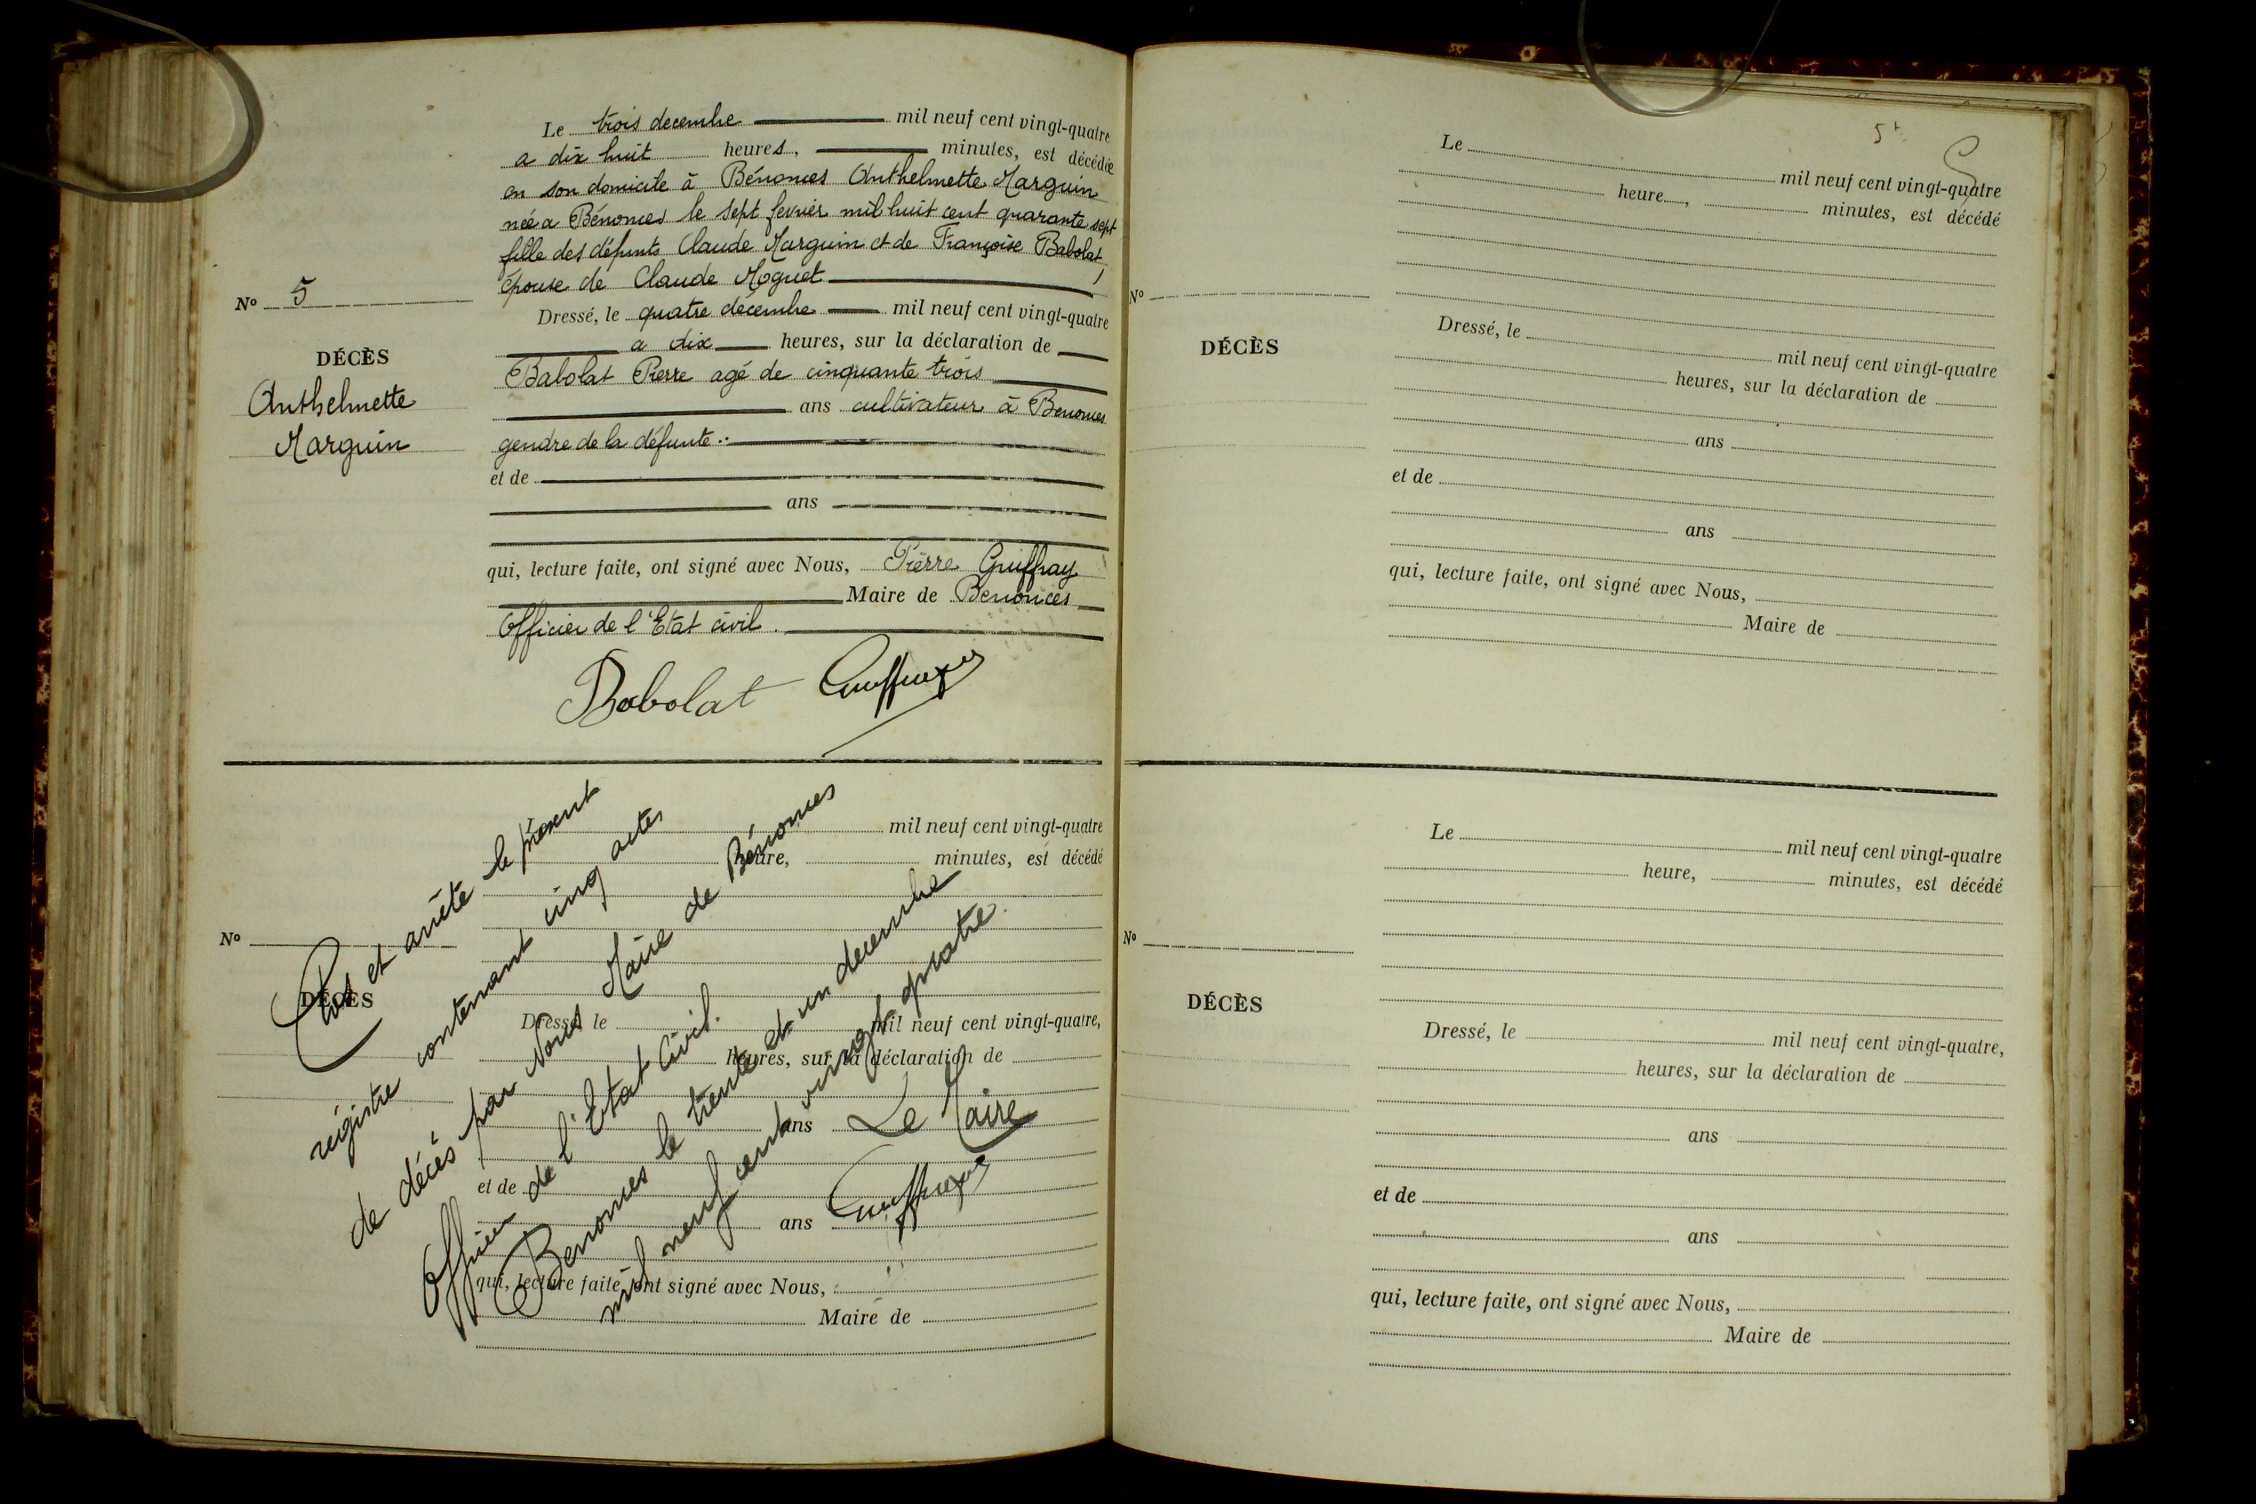 Le trois decembre mil neuf cent vingt-quatre
a dix huit heures, minutes, est décédée
en son domicile à Bénonces Anthelmette Marguin
née a Bénonces le sept fevrier mil huit cent quarante sept
fille des défunts Claude Marguin et de Françoise Babolat,
épouse de Claude Moguet
Dressé, le quatre décembre mil neuf cent vingt-quatre
a dix heures, sur la déclaration de
Babolat Pierre agé de cinquante trois
ans cultivateur à Benonces
gendre de la défunte
et de
ans
qui, lecture faite, ont signé avec Nous, Pierre Guiffray
Maire de Benonces
Officier de l'Etat civil.
Babolat Guiffray
N° 5
DÉCÈS
Anthelmette
Marguin
mil neuf cent vingt-quatre
heure, minutes, est décédé
N°
DÉCÈS
Dressé, le mil neuf cent vingt-quatre,
heures, sur la déclaration de
ans
et de
ans
qui, lecture faite, ont signé avec Nous,
Maire de
Clos et arrêté le présent
régistre contenant cinq actes
de décès par Nous Maire de Bénonces
Officier de l'Etat Civil.
Benonces le trente et un decembre
mil neuf cent vingt quatre.
Le Maire
Guiffray
5
Le mil neuf cent vingt-quatre
heure, minutes, est décédé
N°
DÉCÈS
Dressé, le mil neuf cent vingt-quatre
heures, sur la déclaration de
ans
et de
ans
qui, lecture faite, ont signé avec Nous,
Maire de
Le mil neuf cent vingt-quatre
heure, minutes, est décédé
N°
DÉCÈS
Dressé, le mil neuf cent vingt-quatre,
heures, sur la déclaration de
ans
et de
ans
qui, lecture faite, ont signé avec Nous,
Maire de